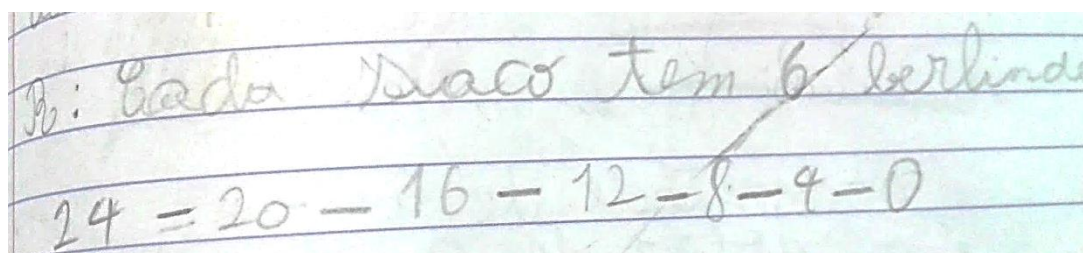 R: Cada saco tem 6 berlind
24 = 20 - 16 - 12 - 8 - 4 - 0